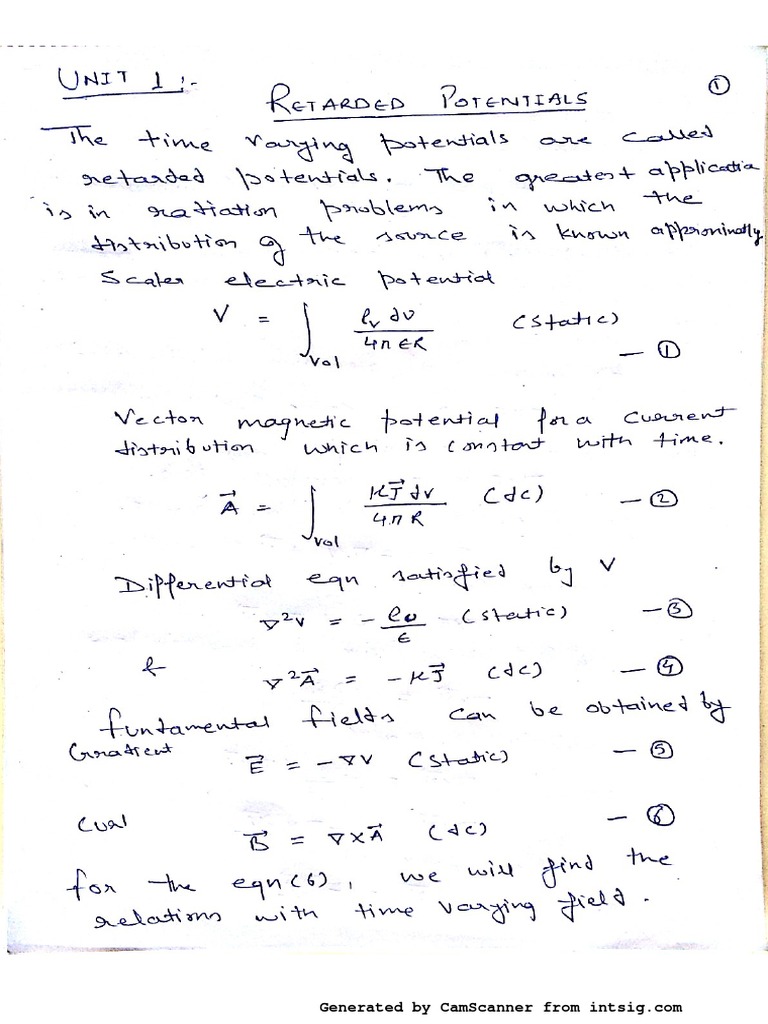 UNIT 1 :-
①
RETARDED POTENTIALS
The time varying potentials are called
retarded potentials. The greatest applicatio
is in radiation problems in which the
distribution of the source is known approximatly.
Scaler electric potential
V = ∫Vol ρv dv / 4π ϵR (static) — ①
Vector magnetic potential for a current
distribution which is constant with time.
A⃗ = ∫vol μJ⃗ dv / 4π R (dc) — ②
Differential eqn satisfied by V
∇²V = - ρv / ϵ (static) — ③
& ∇²A⃗ = -μJ⃗ (dc) — ④
fundamental fields can be obtained by
Gradient
E⃗ = -∇V (static) — ⑤
Curl
B⃗ = ∇×A⃗ (dc) — ⑥
for the eqn (6), we will find the
relations with time varying field.
Generated by CamScanner from intsig.com